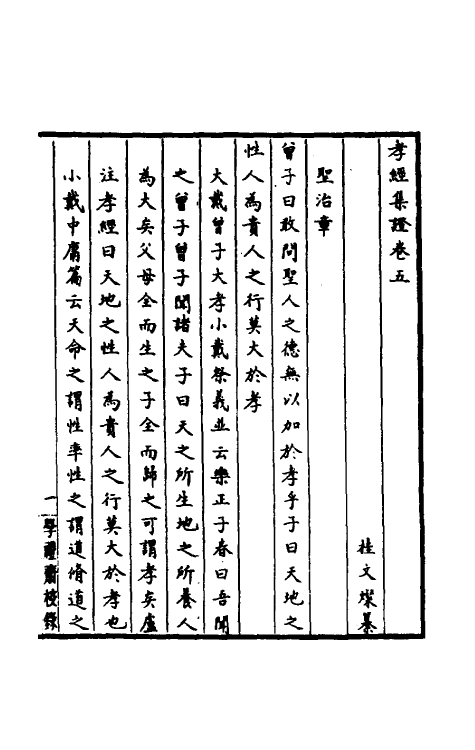 孝經集證卷五
桂文燦纂
聖治章
曾子曰敢問聖人之德無以加於孝乎子曰天地之
性人為貴人之行莫大於孝
大戴曾子大孝小戴祭義並云樂正子春曰吾聞
之曾子曾子聞諸夫子曰天之所生地之所養人
為大矣父母全而生之子全而歸之可謂孝矣盧
注孝經曰天地之性人為貴人之行莫大於孝也
小戴中庸篇云天命之謂性率性之謂道脩道之
一 學禮齋校錄